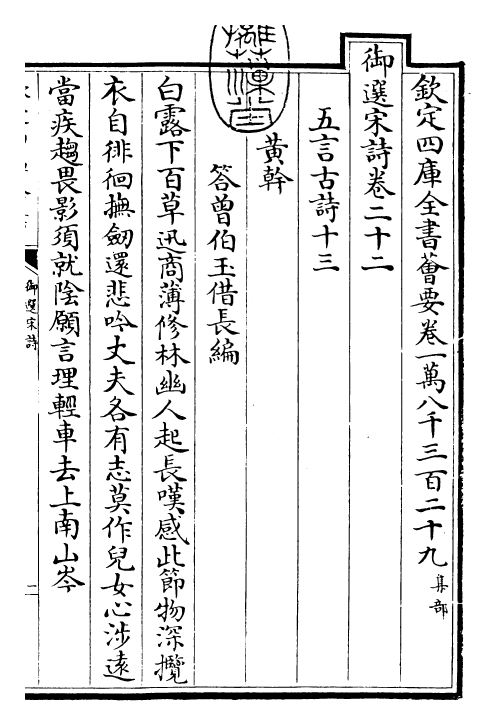 欽定四庫全書薈要卷一萬八千三百二十九 集部
御選宋詩卷二十二
五言古詩十三
黄幹
答曾伯玉借長編
白露下百草迅商薄修林幽人起長嘆感此節物深攬
衣自徘徊撫劒還悲吟丈夫各有志莫作兒女心涉遠
當疾趨畏影須就陰願言理輕車去上南山岑
御選宋詩